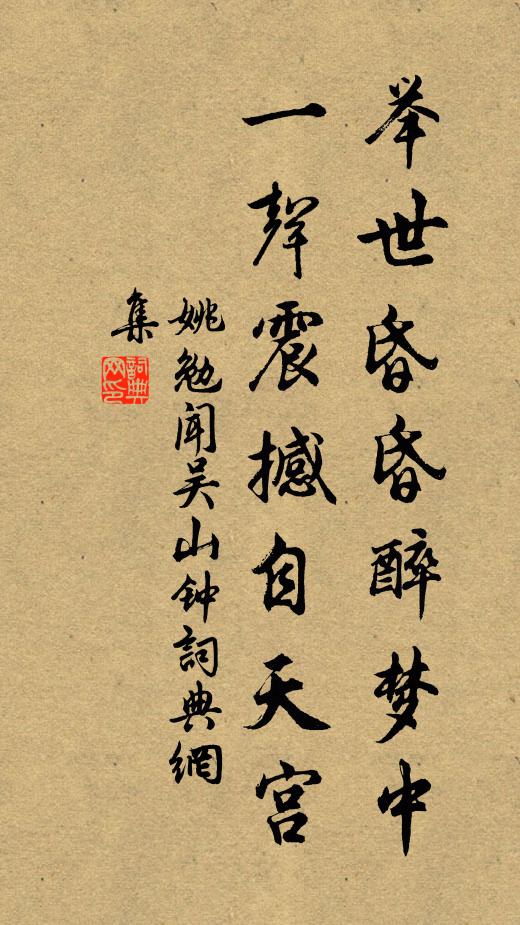 举世昏昏醉梦中
一聲震撼自天宫
姚勉闻吴山钟詞典網
集
詞典网印